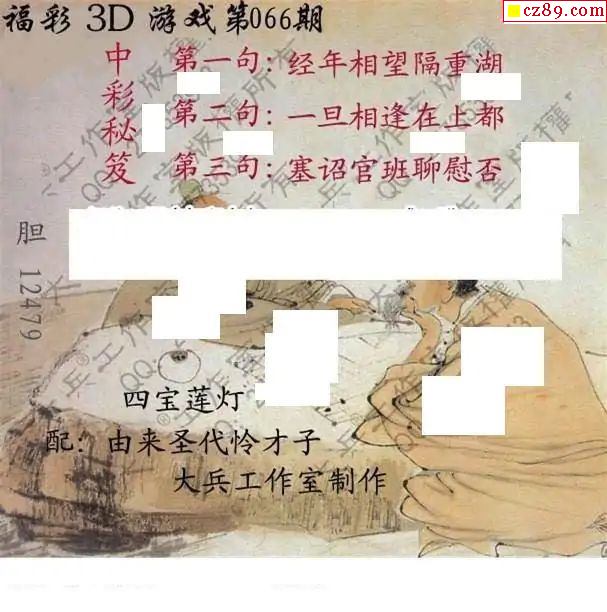 福彩 3D 游戏第066期
cz89.com
中彩秘笈
第一句：经年相望隔重湖
第二句：一旦相逢在上都
第三句：塞诏官班聊慰否
胆 12479
四宝莲灯
配：由来圣代怜才子
大兵工作室制作